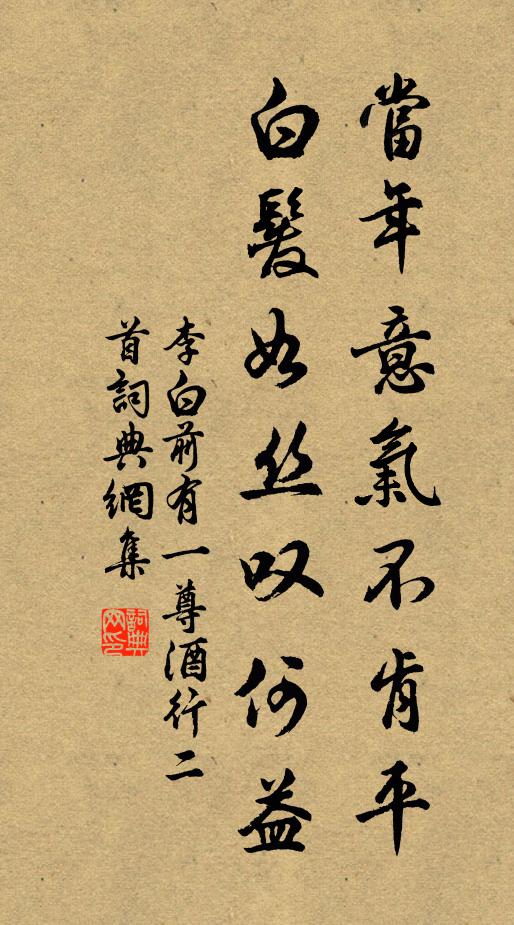 當年意氣不肯平
白髮如丝叹何益
李白前有一尊酒行二
首詞典網集
詞典
网印